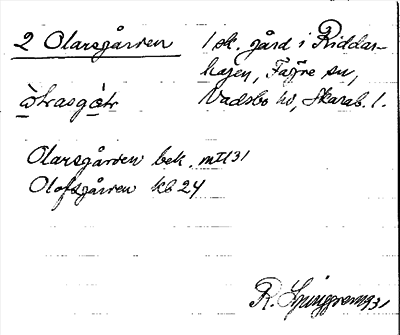 2 Olarsgården
1 sk. gård i Riddar-
hagen, Fägre sn,
Vadsbo hd, Skarab. l.
Olarsgården bek.
Olofsgården kb 24
R. Ljunggren 1931